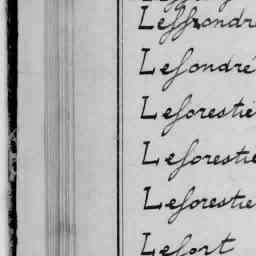 Leffrondr
Lefondré
Leforestie
Leforestie
Leforestie
Lefort